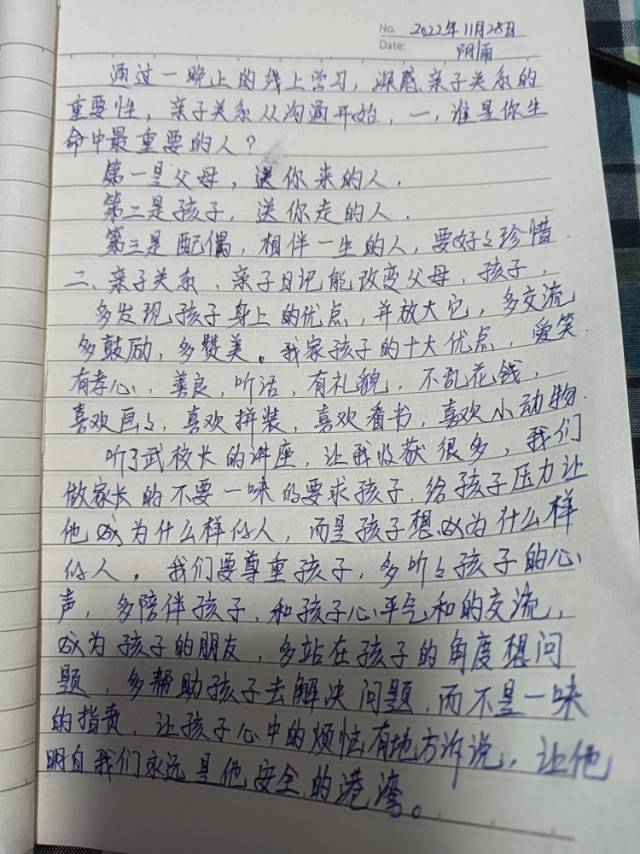 No. 2022年11月28日
Date: 阴雨
通过一晚上的线上学习，深感亲子关系的
重要性，亲子关系从沟通开始，一，谁是你生
命中最重要的人？
第一是父母，送你来的人，
第二是孩子，送你走的人．
第三是配偶，相伴一生的人，要好々珍惜．
二、亲子关系、亲子日记能改变父母，孩子，
多发现孩子身上的优点，并放大它，多交流
多鼓励，多赞美。我家孩子的十大优点，爱笑．
有孝心，善良，听话，有礼貌，不乱花钱，
喜欢画々，喜欢拼装，喜欢看书，喜欢小动物．
听了武校长的讲座，让我收获很多，我们
做家长的不要一味的要求孩子，给孩子压力让
他成为什么样的人，而是孩子想成为什么样
的人。我们要尊重孩子，多听々孩子的心
声，多陪伴孩子，和孩子心平气和的交流，
成为孩子的朋友，多站在孩子的角度想问
题，多帮助孩子去解决问题，而不是一味
的指责，让孩子心中的烦恼有地方诉说，让他
明白我们永远是他安全的港湾。